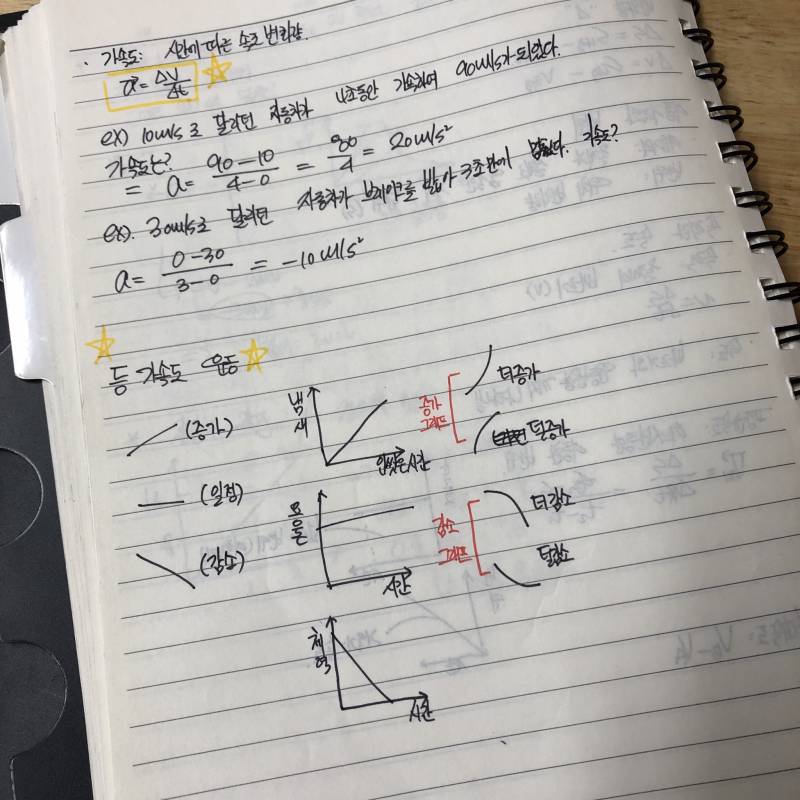 · 가속도: 시간에 따른 속도 변화량.
a = ΔV/Δt
ex) 10m/s로 달리던 자동차가 4초동안 가속하여 90m/s가 되었다.
가속도는?
= a = 90-10/4-0 = 80/4 = 20m/s²
ex). 30m/s로 달리던 자동차가 브레이크를 밟아 3초만에 멈췄다. 가속도?
a = 0-30/3-0 = -10m/s²
등 가속도 운동
(증가)
냄새
안씻은시간
증가 그래프
더증가
덜증가
(일정)
시간
감소 그래프
더감소
덜감소
(감소)
체력
시간